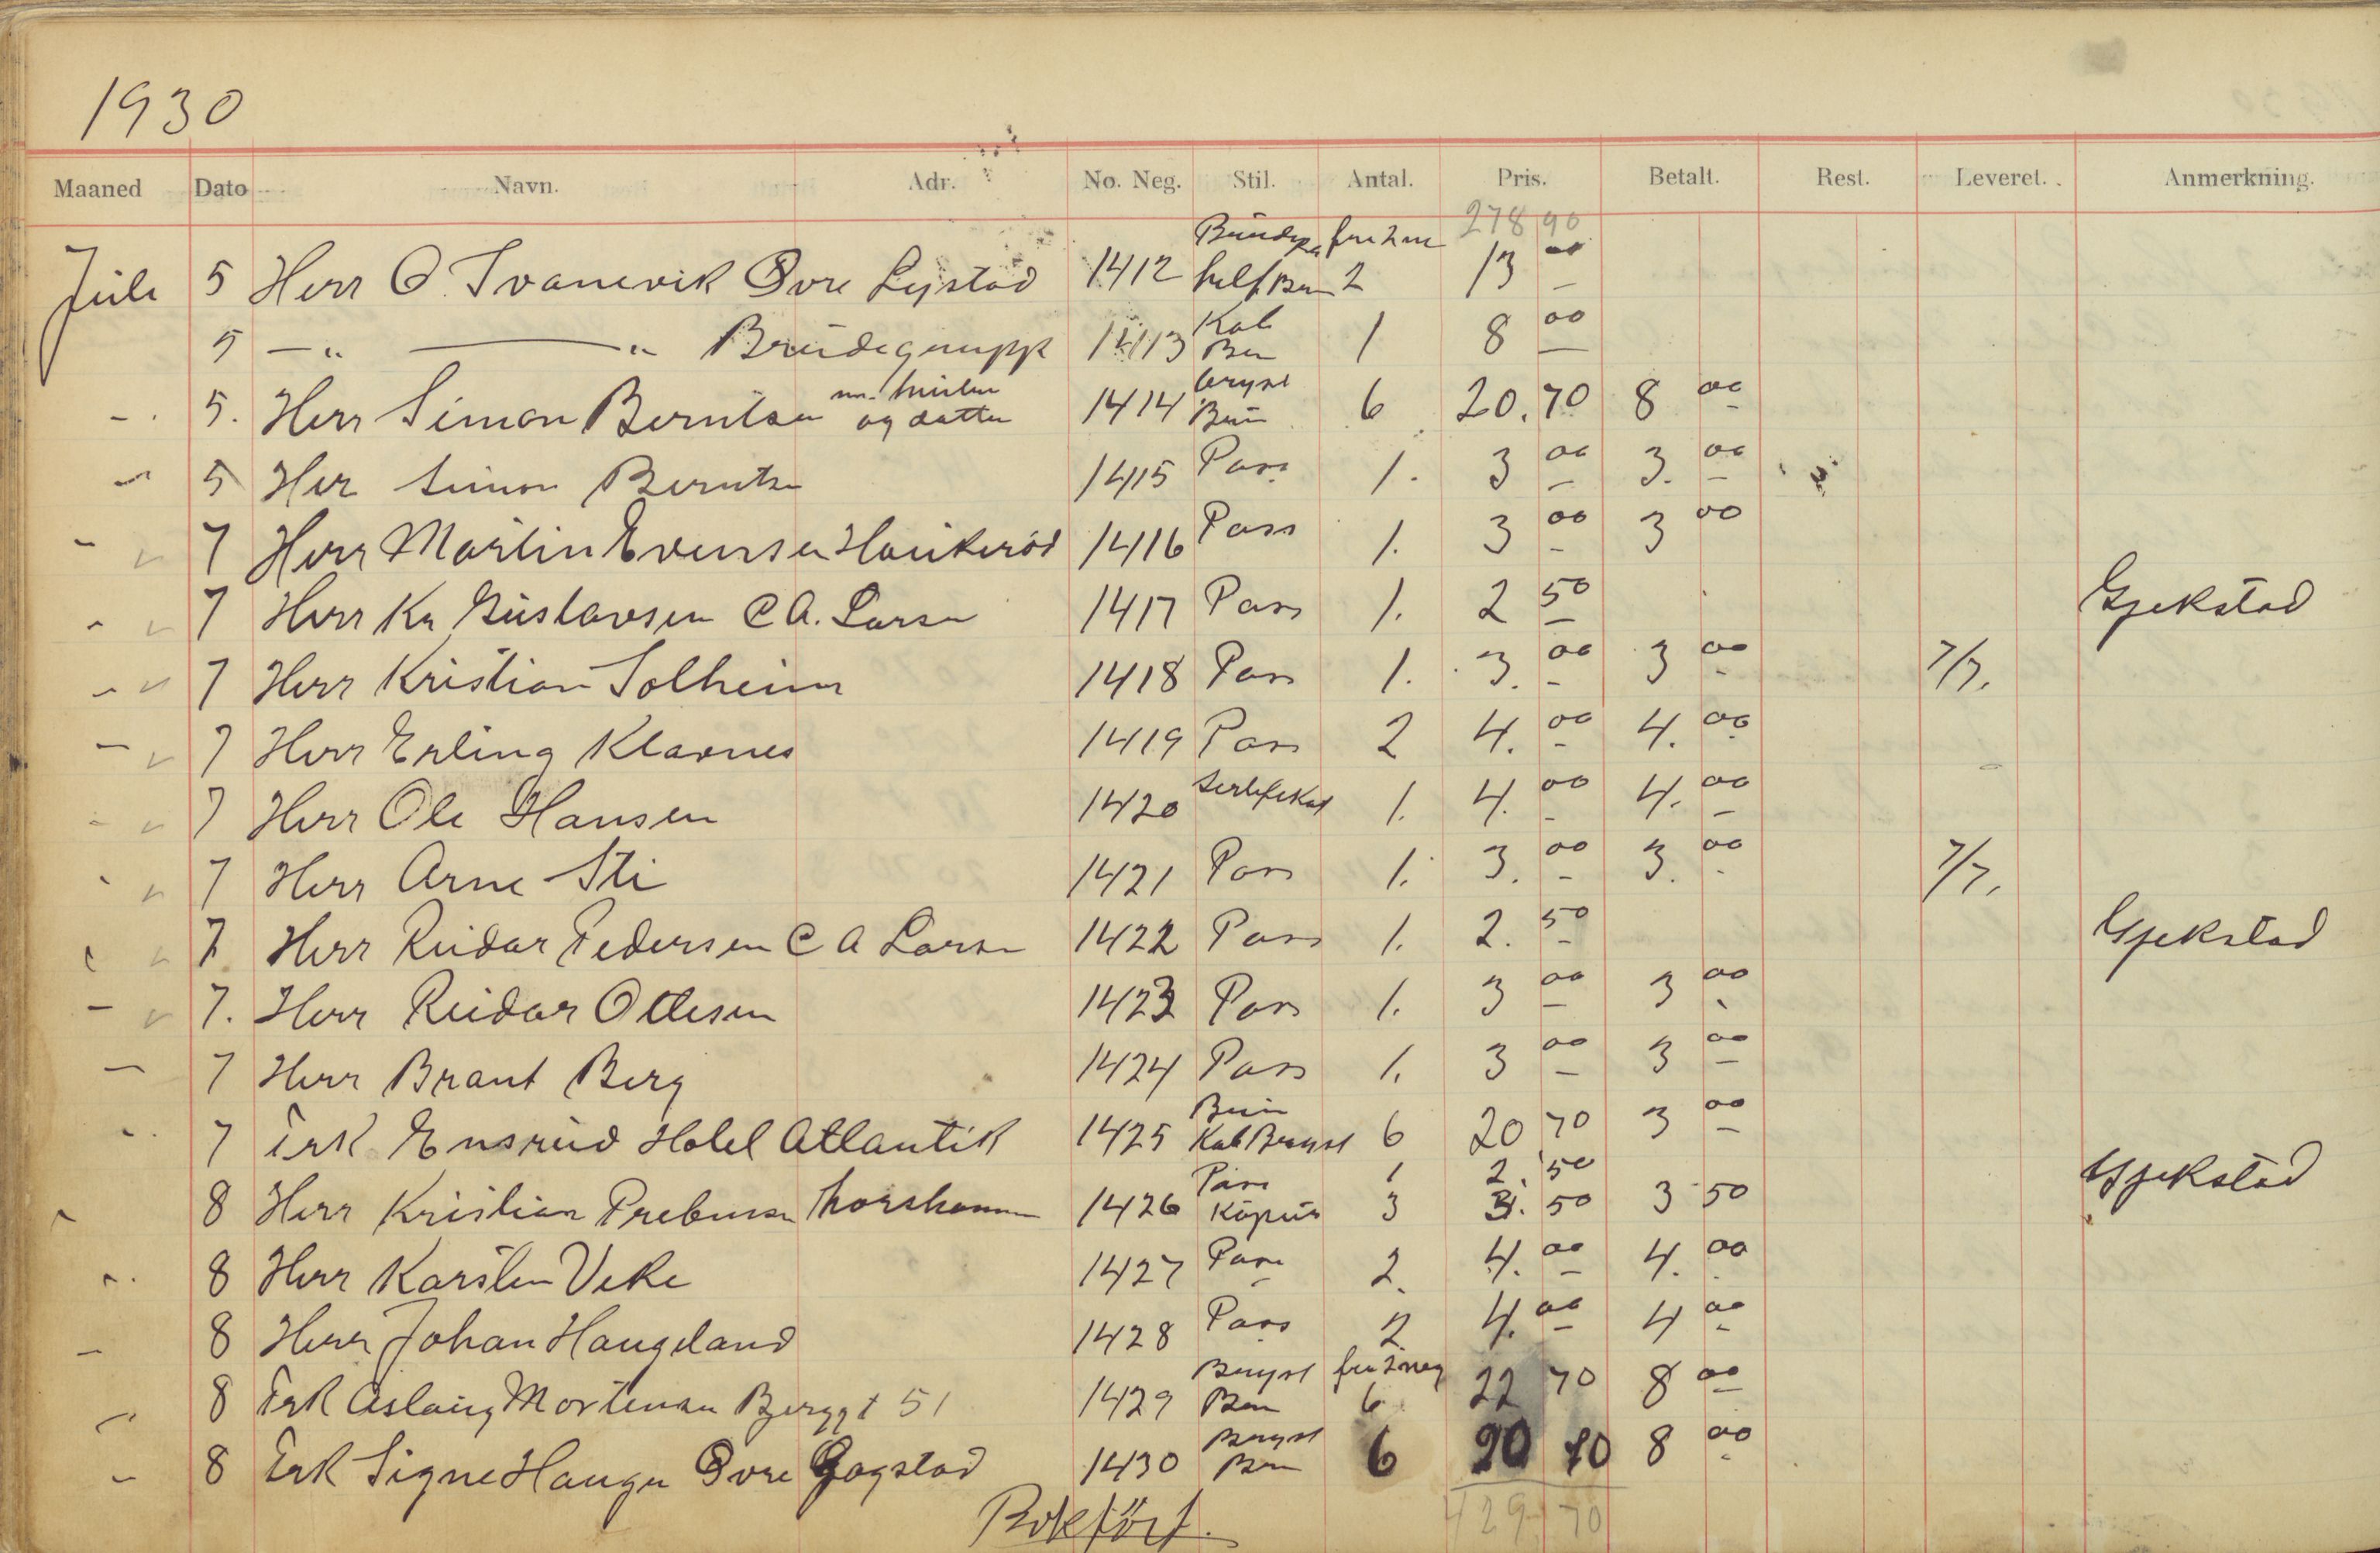 1930
Maaned Dato Navn. Adr. No. Neg. Stil. Antal. Pris. Betalt. Rest. Leveret. Anmerkning.
278 90
Juli 5 Herr O. Svanevik Øvre 1412 2 13 00
5 —"— " Brudegruppe 1413 Kab 1 8 00
5. Herr Simon Berntsen og datter 1414 Bryst 6 20.70 8 00
5 Herr Simon Berntsen 1415 Pass 1. 3 00 3. 00
7 Herr Martin Evensen Haukerød 1416 Pass 1. 3 00 3 00
7 Herr Kr Gustavsen C A. Larsen 1417 Pass 1. 2 50 Gjekstad
7 Herr Kristian Solheim 1418 Pass 1. 3. 00 3 00 7/7.
7 Herr Erling Klavnes 1419 Pass 2 4. 00 4. 00
7 Herr Ole Hansen 1420 Sertifikat 1. 4. 00 4. 00
7 Herr Arne Sti 1421 Pass 1. 3. 00 3. 00 7/7.
7 Herr Reidar Pedersen C A Larsen 1422 Pass 1. 2. 50 Gjekstad
7. Herr Reidar Ottesen 1423 Pass 1. 3 00 3 00
7 Herr Brant Berg 1424 Pass 1. 3 00 3 00
7 Frk Ensrud Hotel Atlantik 1425 Kab Bryst 6 20 70 3 00
Pass 1 2. 50
8 Herr Kristian Prebensen Thorshammer 1426 3 3. 50 3 50 Gjekstad
8 Herr Karsten Veke 1427 Pass 2. 4. 00 4. 00
8 Herr Johan Haugeland 1428 Pass 2 4. 00 4 00
8 Frk Aslaug Mortensen Berggt 51 1429 Bryst 6 22 70 8 00
8 Frk Signe Haugen Øvre Gogstad 1430 Bryst 6 20 70 8 00
Bokført. 429 70